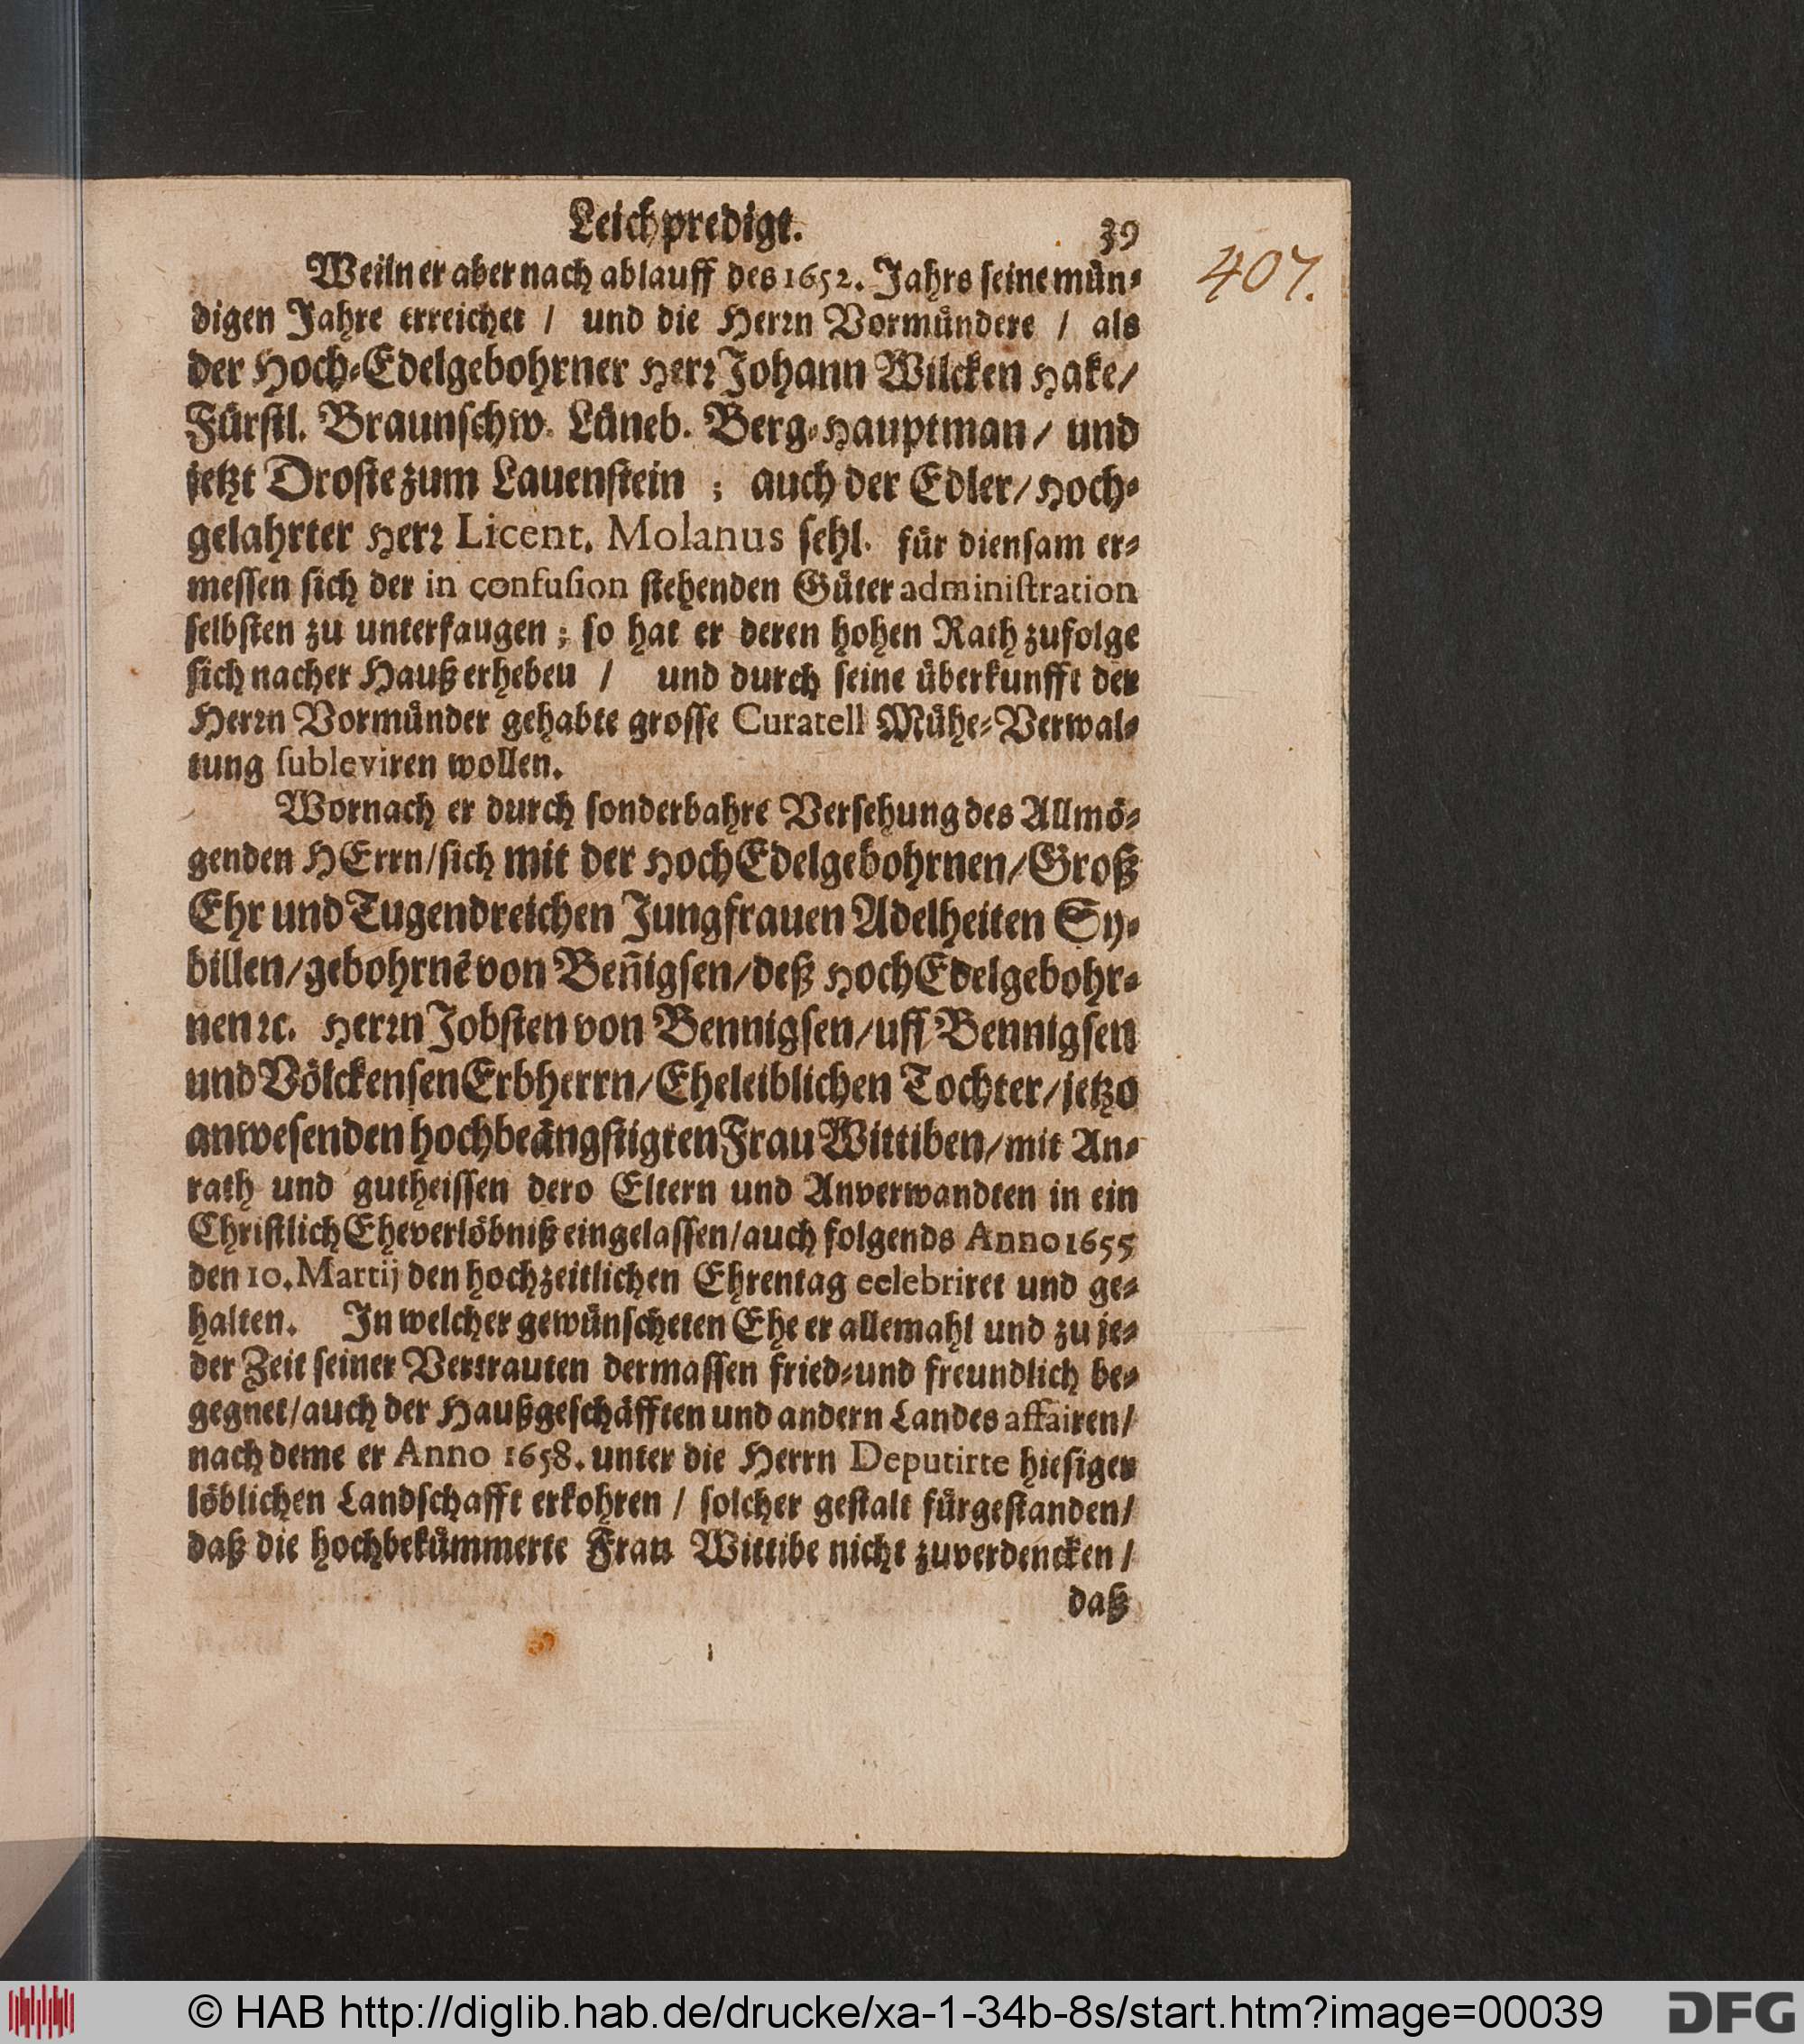 Leichpredigt. 39
407.
Weiln er aber nach ablauff des 1652. Jahrs seine mün-
digen Jahre erreichet / und die Herrn Vormündere / als
der Hoch-Edelgebohrner Herr Johann Wilcken Hake /
Fürstl. Braunschw. Lüneb. Berg-Hauptman / und
jetzt Droste zum Lauenstein ; auch der Edler / Hoch-
gelahrter Herr Licent. Molanus sehl. für diensam er-
messen sich der in confusion stehenden Güter administration
selbsten zu unterfaugen ; so hat er deren hohen Rath zufolge
sich nacher Hauß erheben / und durch seine überkunfft der
Herrn Vormünder gehabte grosse Curatell Mühe-Verwal-
tung subleviren wollen.
Wornach er durch sonderbahre Versehung des Allmö-
genden HErrn / sich mit der HochEdelgebohrnen / Groß
Ehr und Tugendreichen Jungfrauen Adelheiten Sy-
billen / gebohrnē von Beñigsen / deß HochEdelgebohr-
nen ꝛc. Herrn Jobsten von Bennigsen / uff Bennigsen
und Völckensen Erbherrn / Eheleiblichen Tochter / jetzo
anwesenden hochbeängstigten Frau Wittiben / mit An-
rath und gutheissen dero Eltern und Anverwandten in ein
Christlich Eheverlöbniß eingelassen / auch folgends Anno 1655
den 10. Martij den hochzeitlichen Ehrentag celebriret und ge-
halten. In welcher gewünscheten Ehe er allemahl und zu je-
der Zeit seiner Vertrauten dermassen fried- und freundlich be-
gegnet / auch der Haußgeschäfften und andern Landes affairen /
nach deme er Anno 1658. unter die Herrn Deputirte hiesiger
löblichen Landschafft erkohren / solcher gestalt fürgestanden /
daß die hochbekümmerte Frau Wittibe nicht zuverdencken /
daß
© HAB http://diglib.hab.de/drucke/xa-1-34b-8s/start.htm?image=00039
DFG